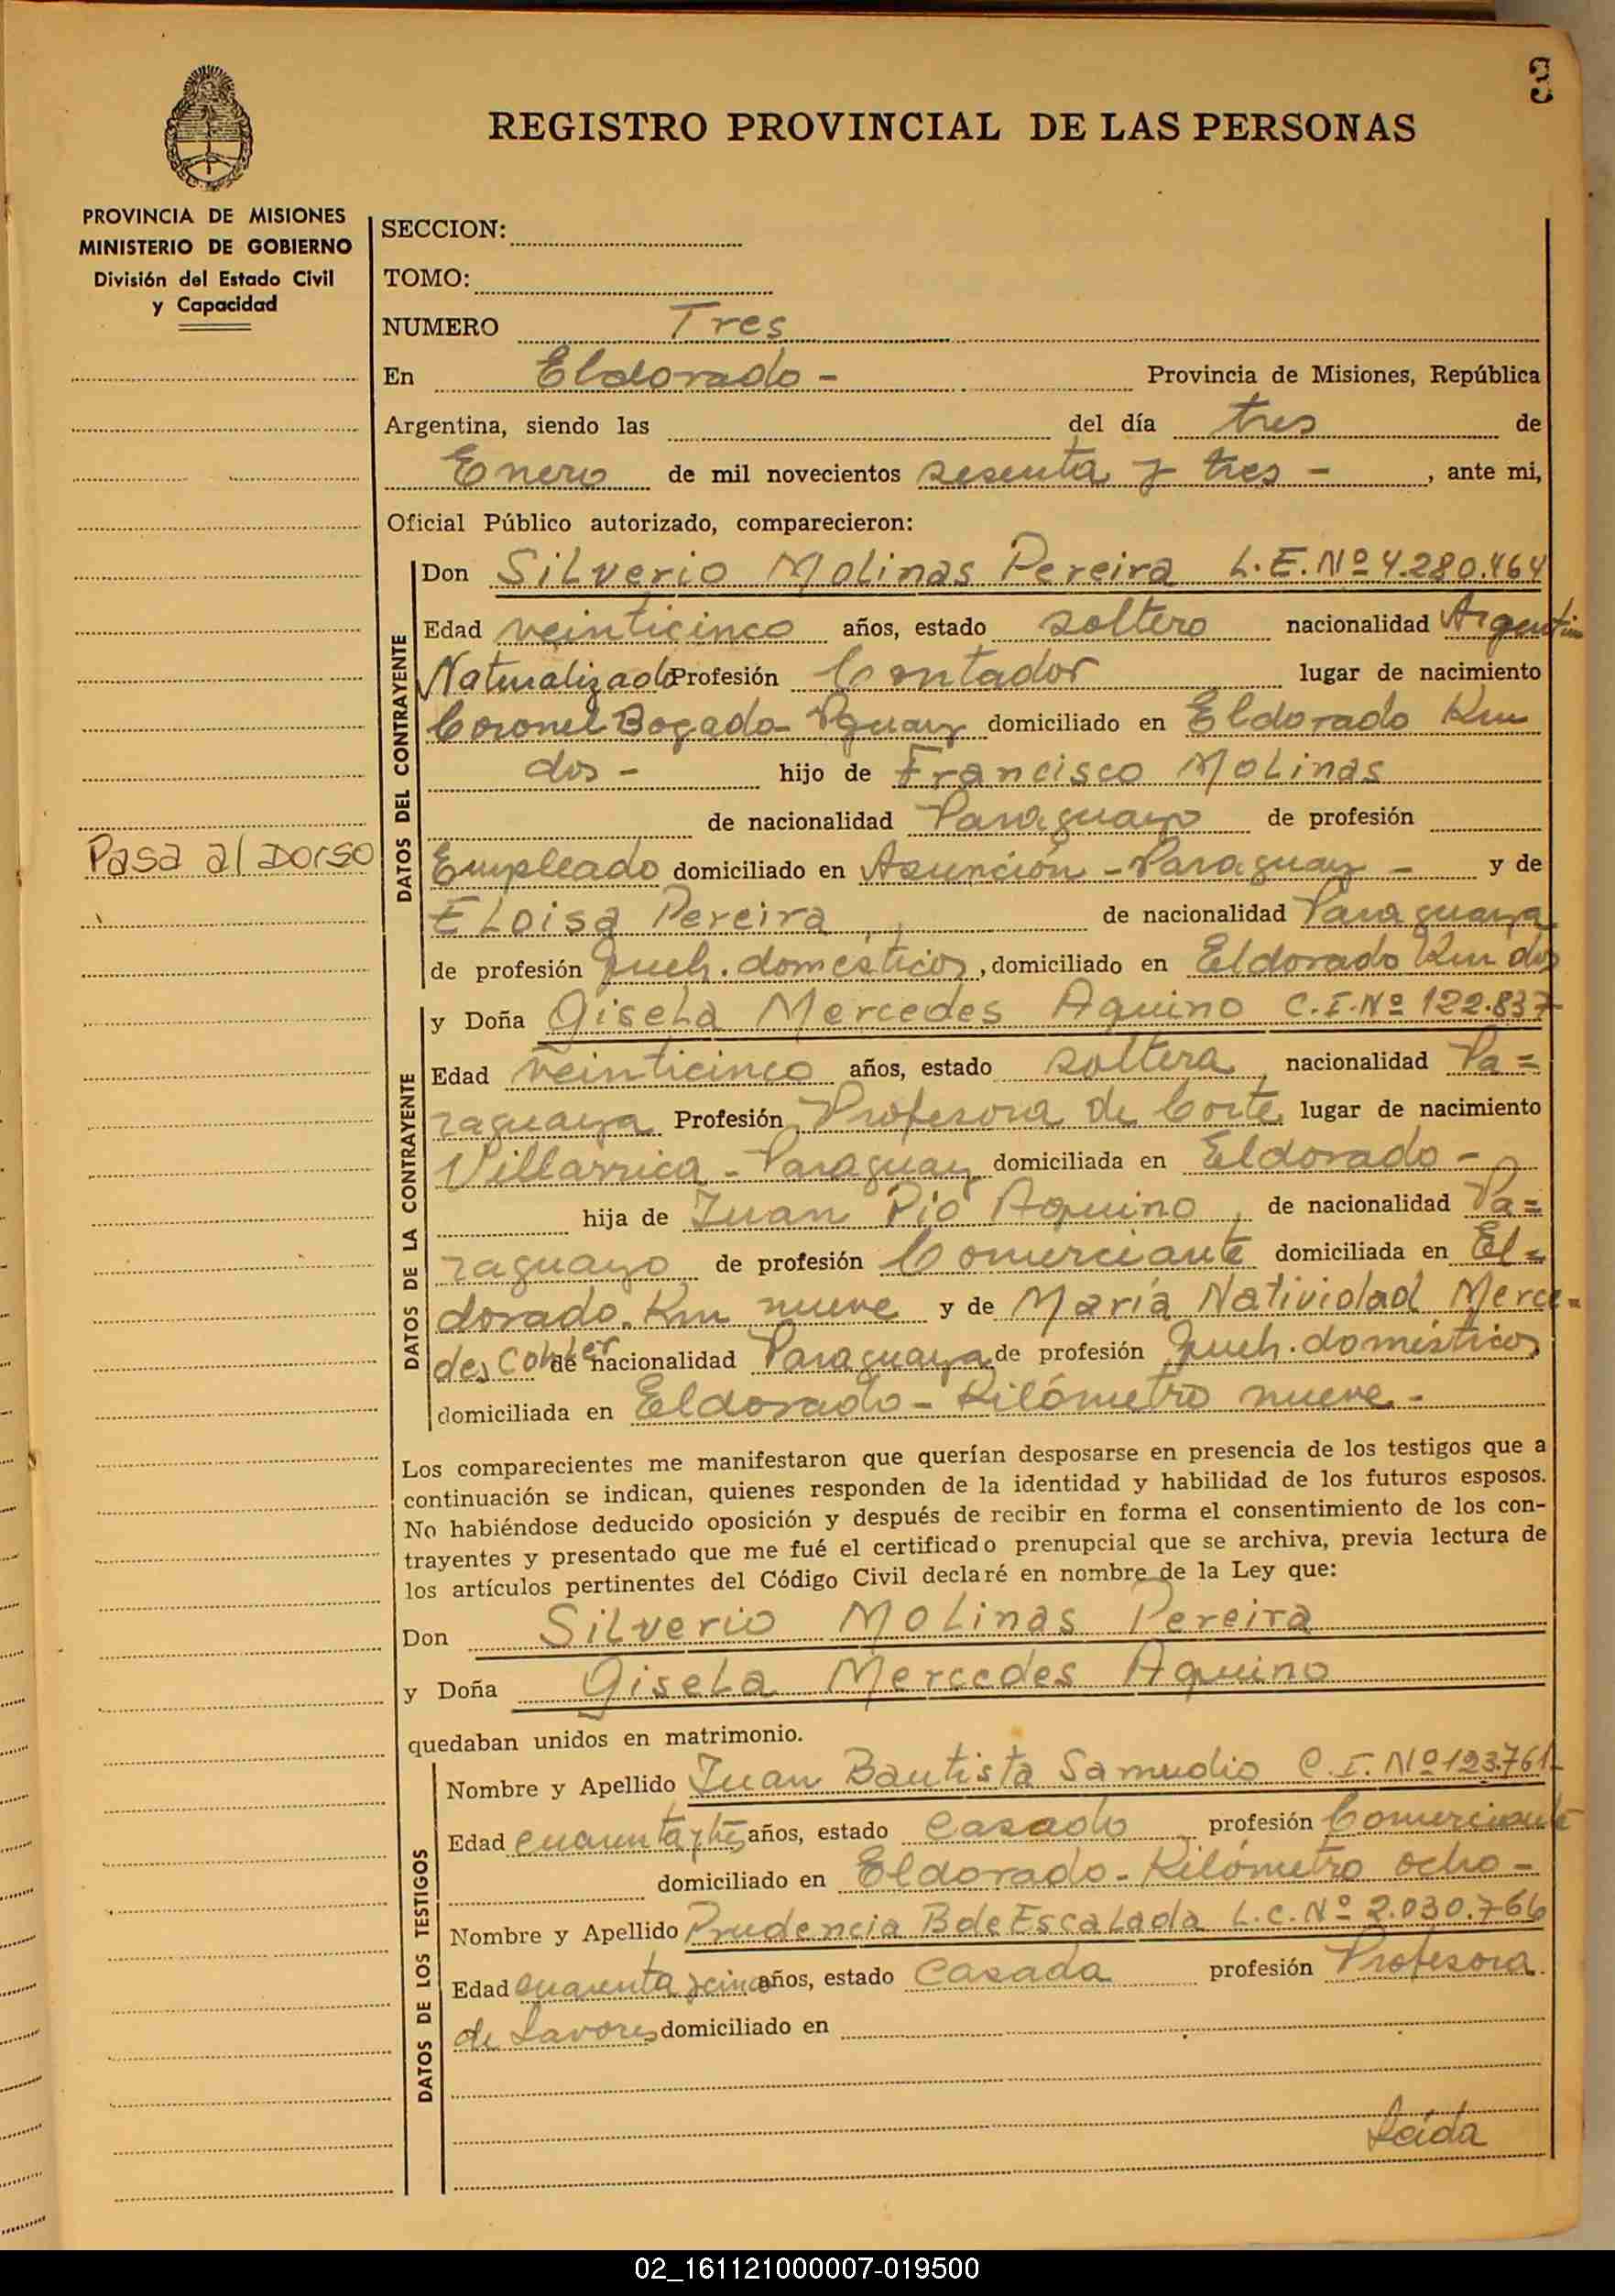 3
REGISTRO PROVINCIAL DE LAS PERSONAS
PROVINCIA DE MISIONES
MINISTERIO DE GOBIERNO
División del Estado Civil
y Capacidad
SECCION:
TOMO:
NUMERO Tres
En Eldorado - Provincia de Misiones, República
Argentina, siendo las del día tres de
Enero de mil novecientos sesenta y tres - , ante mi,
Oficial Público autorizado, comparecieron:
DATOS DEL CONTRAYENTE
Don Silverio Molinas Pereira L.E. Nº 4.280.464
Edad veinticinco años, estado soltero nacionalidad Argentino
Naturalizado Profesión Contador lugar de nacimiento
Coronel Bogado - Pguay domiciliado en Eldorado Km
dos - hijo de Francisco Molinas
de nacionalidad Paraguayo de profesión
Empleado domiciliado en Asunción - Paraguay - y de
Eloisa Pereira, de nacionalidad Paraguaya
de profesión Queh. domésticos, domiciliado en Eldorado Km dos
DATOS DE LA CONTRAYENTE
y Doña Gisela Mercedes Aquino C.I. Nº 122.837
Edad veinticinco años, estado soltera, nacionalidad Pa=
raguaya Profesión Profesora de Corte, lugar de nacimiento
Villarrica - Paraguay domiciliada en Eldorado -
hija de Juan Pío Aquino, de nacionalidad Pa=
raguayo de profesión Comerciante domiciliada en El=
dorado. Km nueve y de María Natividad Merce=
des Cohler de nacionalidad Paraguaya de profesión Queh. domésticos
domiciliada en Eldorado - Kilómetro nueve -
Pasa al Dorso
Los comparecientes me manifestaron que querían desposarse en presencia de los testigos que a
continuación se indican, quienes responden de la identidad y habilidad de los futuros esposos.
No habiéndose deducido oposición y después de recibir en forma el consentimiento de los con-
trayentes y presentado que me fué el certificado prenupcial que se archiva, previa lectura de
los artículos pertinentes del Código Civil declaré en nombre de la Ley que:
Don Silverio Molinas Pereira
y Doña Gisela Mercedes Aquino
quedaban unidos en matrimonio.
DATOS DE LOS TESTIGOS
Nombre y Apellido Juan Bautista Samudio C.I. Nº 123.761-
Edad cuarenta y tres años, estado casado profesión Comerciante
domiciliado en Eldorado - Kilómetro ocho -
Nombre y Apellido Prudencia B de Escalada L.C. Nº 2.030.766
Edad cuarenta y cinco años, estado casada profesión Profesora
de Lavores domiciliado en
Leída
02_161121000007-019500